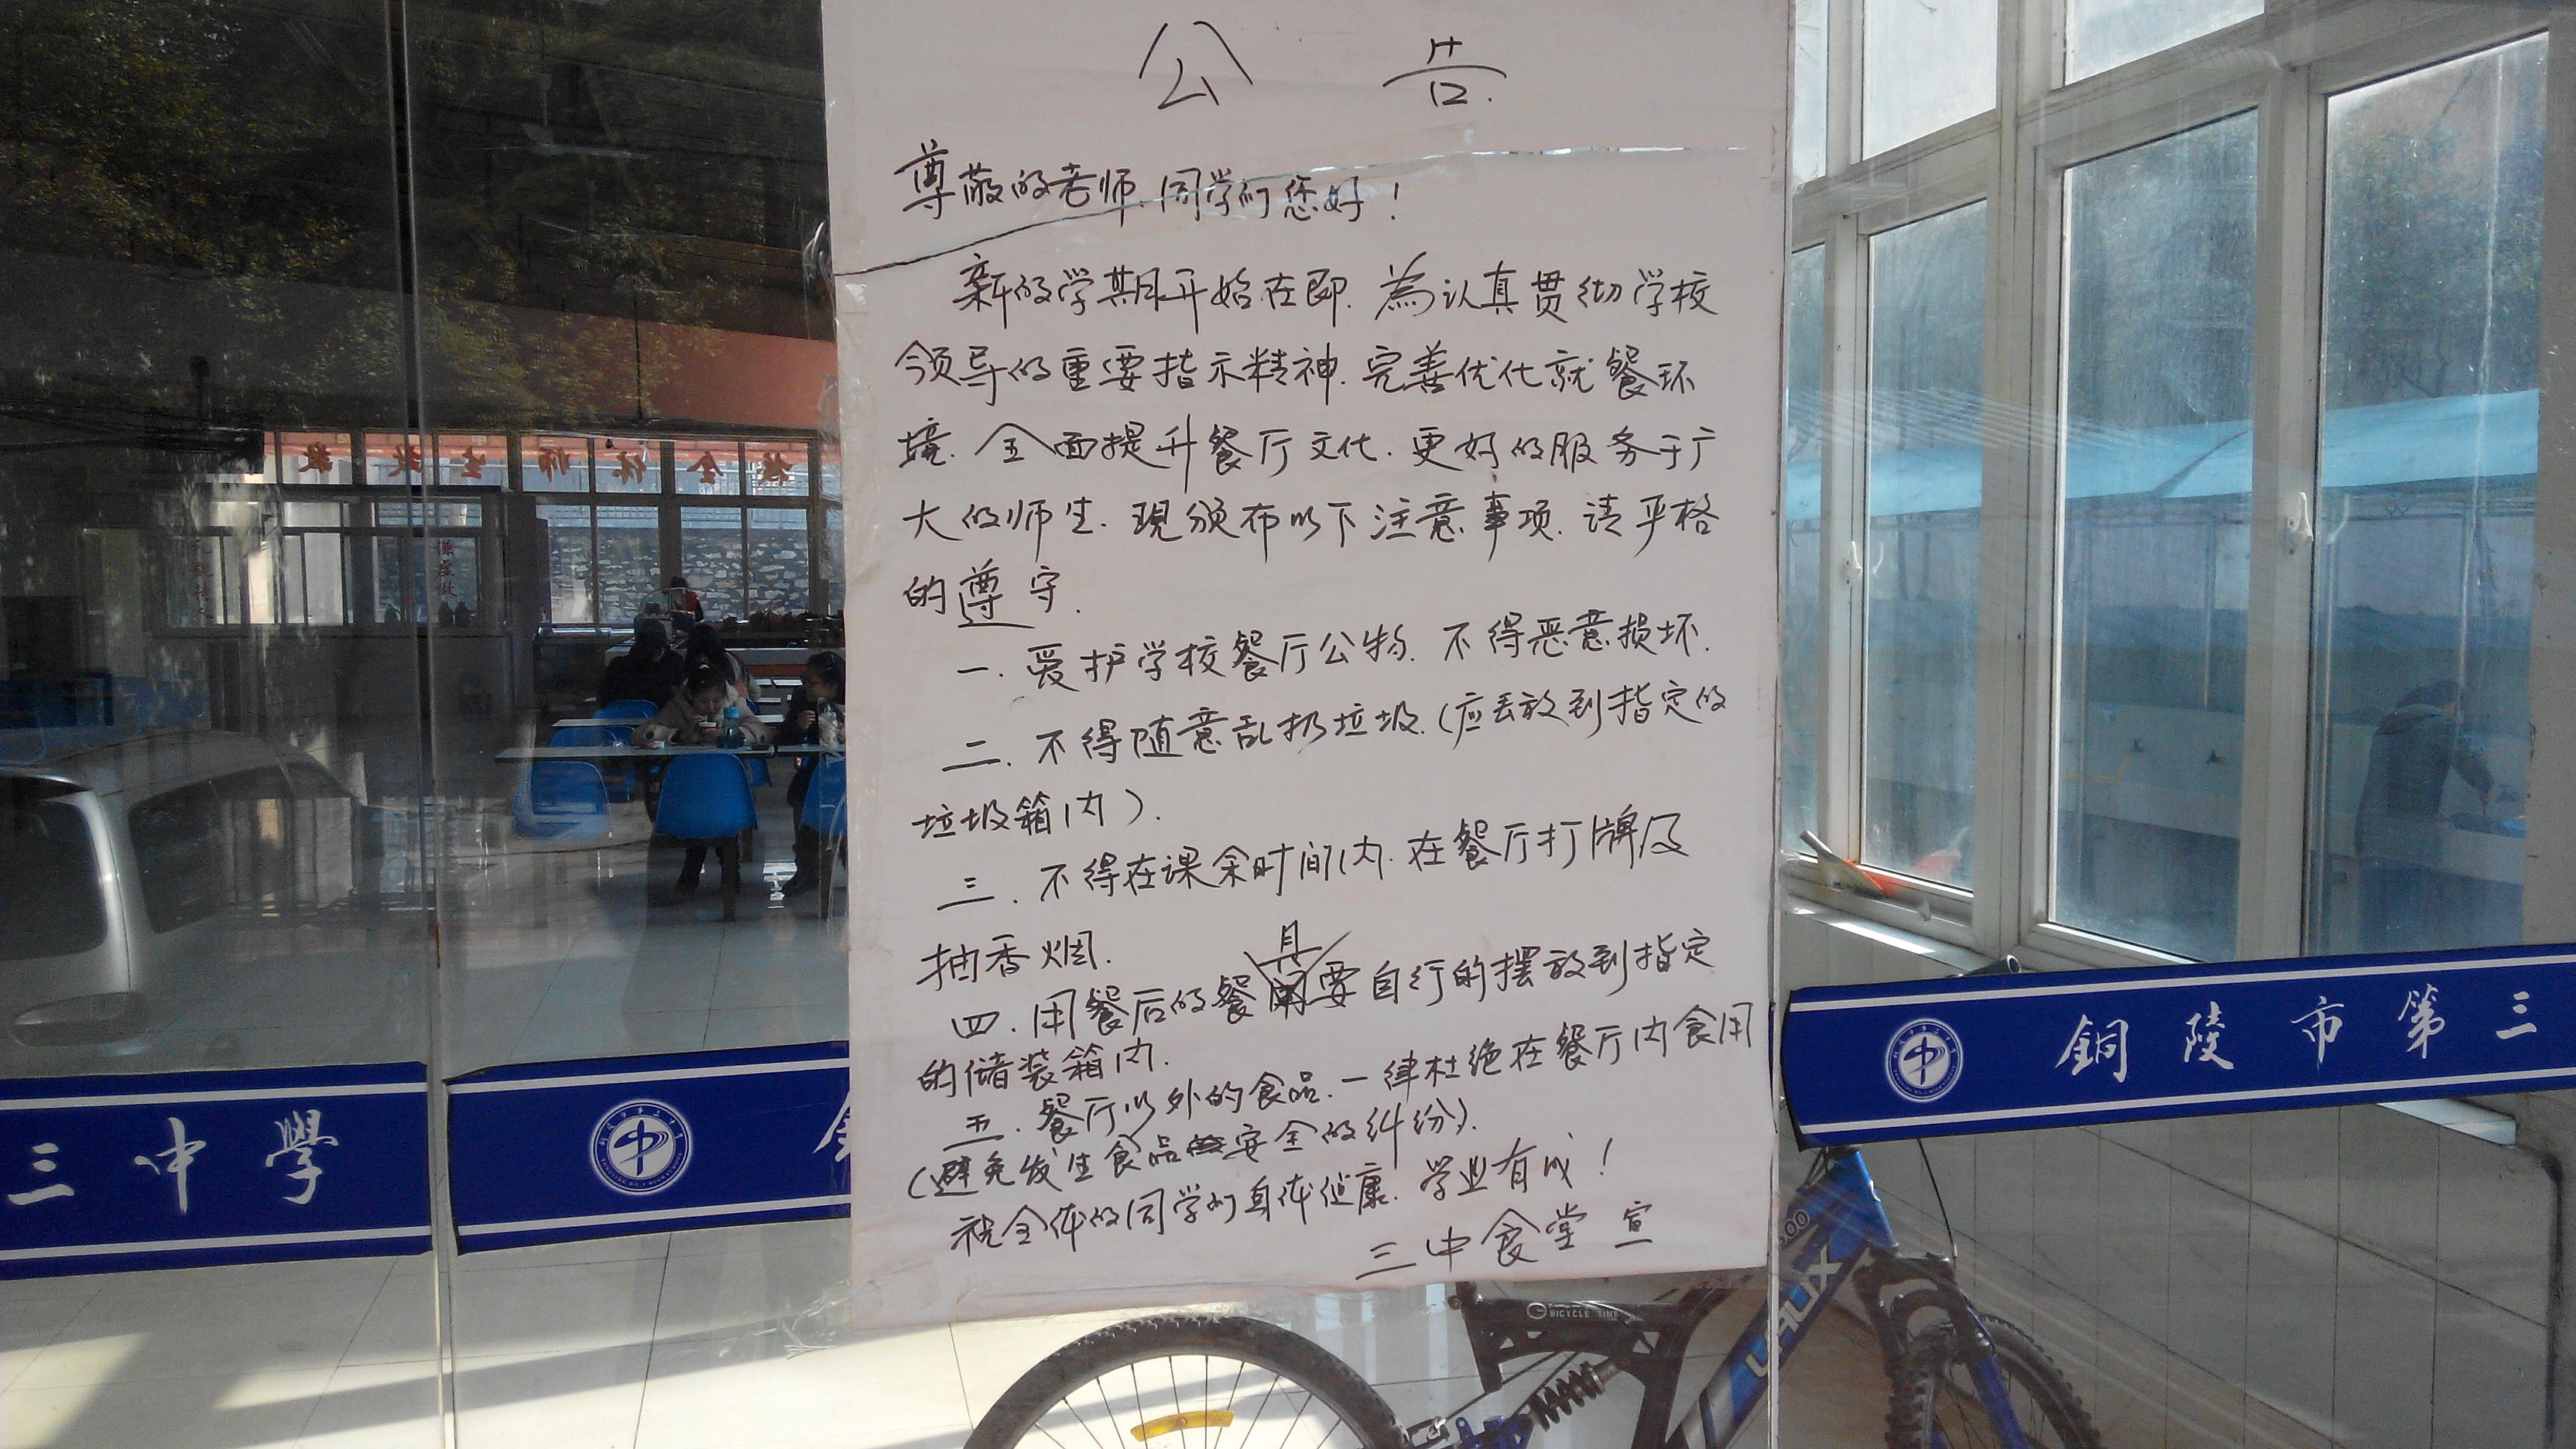 公 告.
尊敬的老师.同学们您好!
新的学期开始在即.為认真贯彻学校
领导的重要指示精神.完善优化就餐环
境.全面提升餐厅文化.更好的服务于广
大的师生.現颁布以下注意事项.请严格
的遵守.
一.爱护学校餐厅公物.不得恶意损坏.
二.不得随意乱扔垃圾.(应丢放到指定的
垃圾箱内).
三.不得在课余时间内.在餐厅打牌及
抽香烟.
四.用餐后的餐具要自行的摆放到指定
的储装箱内.
五.餐厅以外的食品.一律杜绝在餐厅内食用
(避免发生食品安全的纠纷).
祝全体的同学们身体健康.学业有成!
三中食堂 宣
三中學
銅陵市第三
中
中
UAUX
BICYCLE TIME